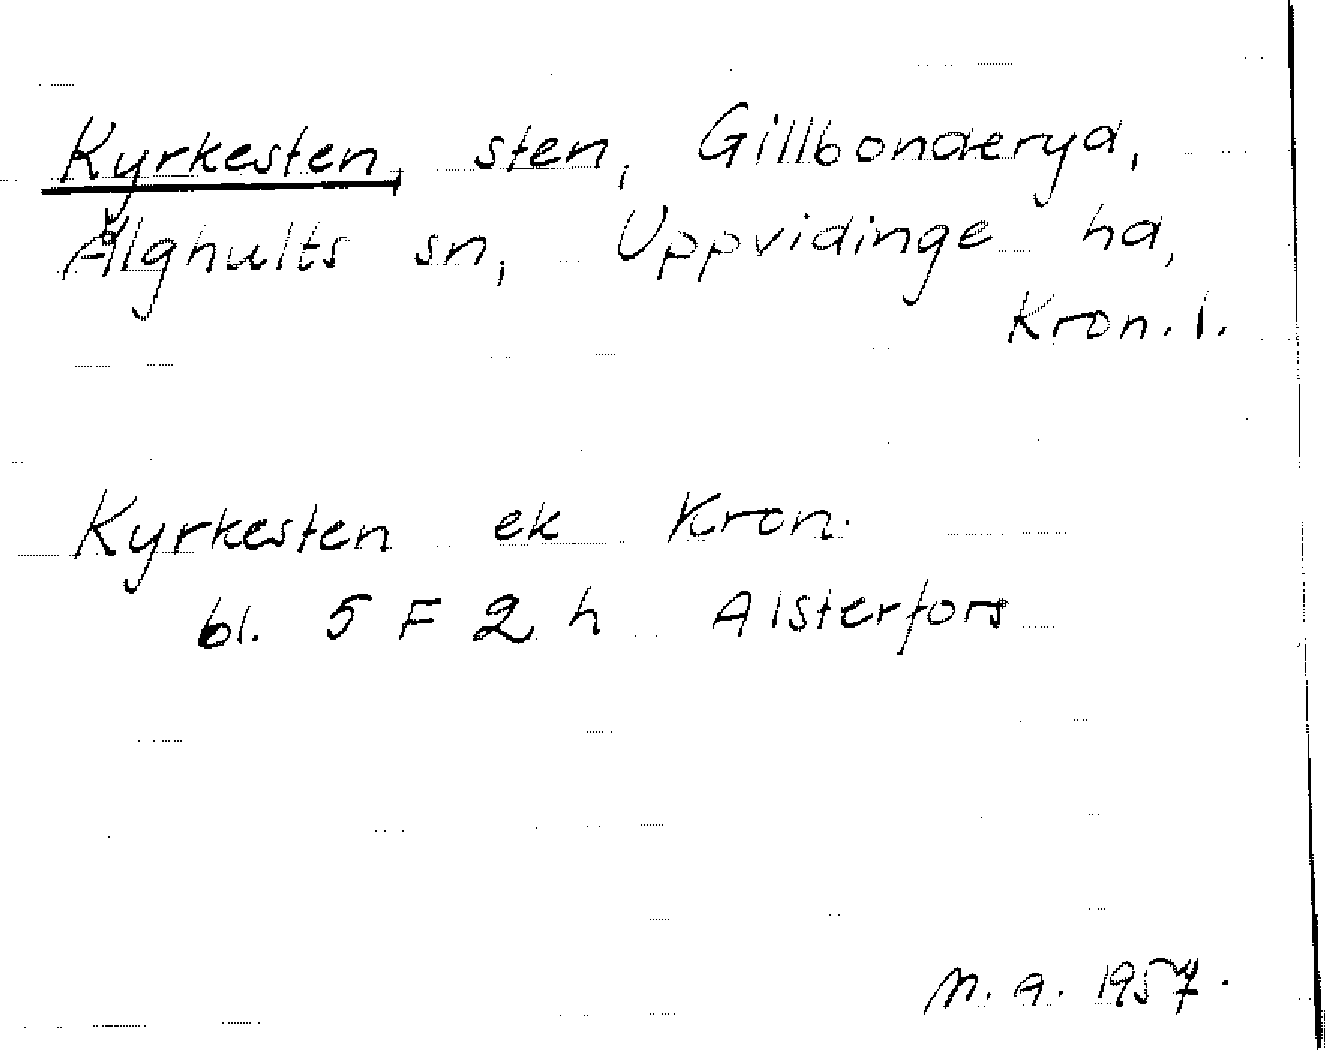 Kyrkesten, sten, Gillbonderyd,
Älghults sn, Uppvidinge hd,
Kron. l.
Kyrkesten ek Kron.
bl. 5 F 2 h Alsterfors
M. A. 1957.